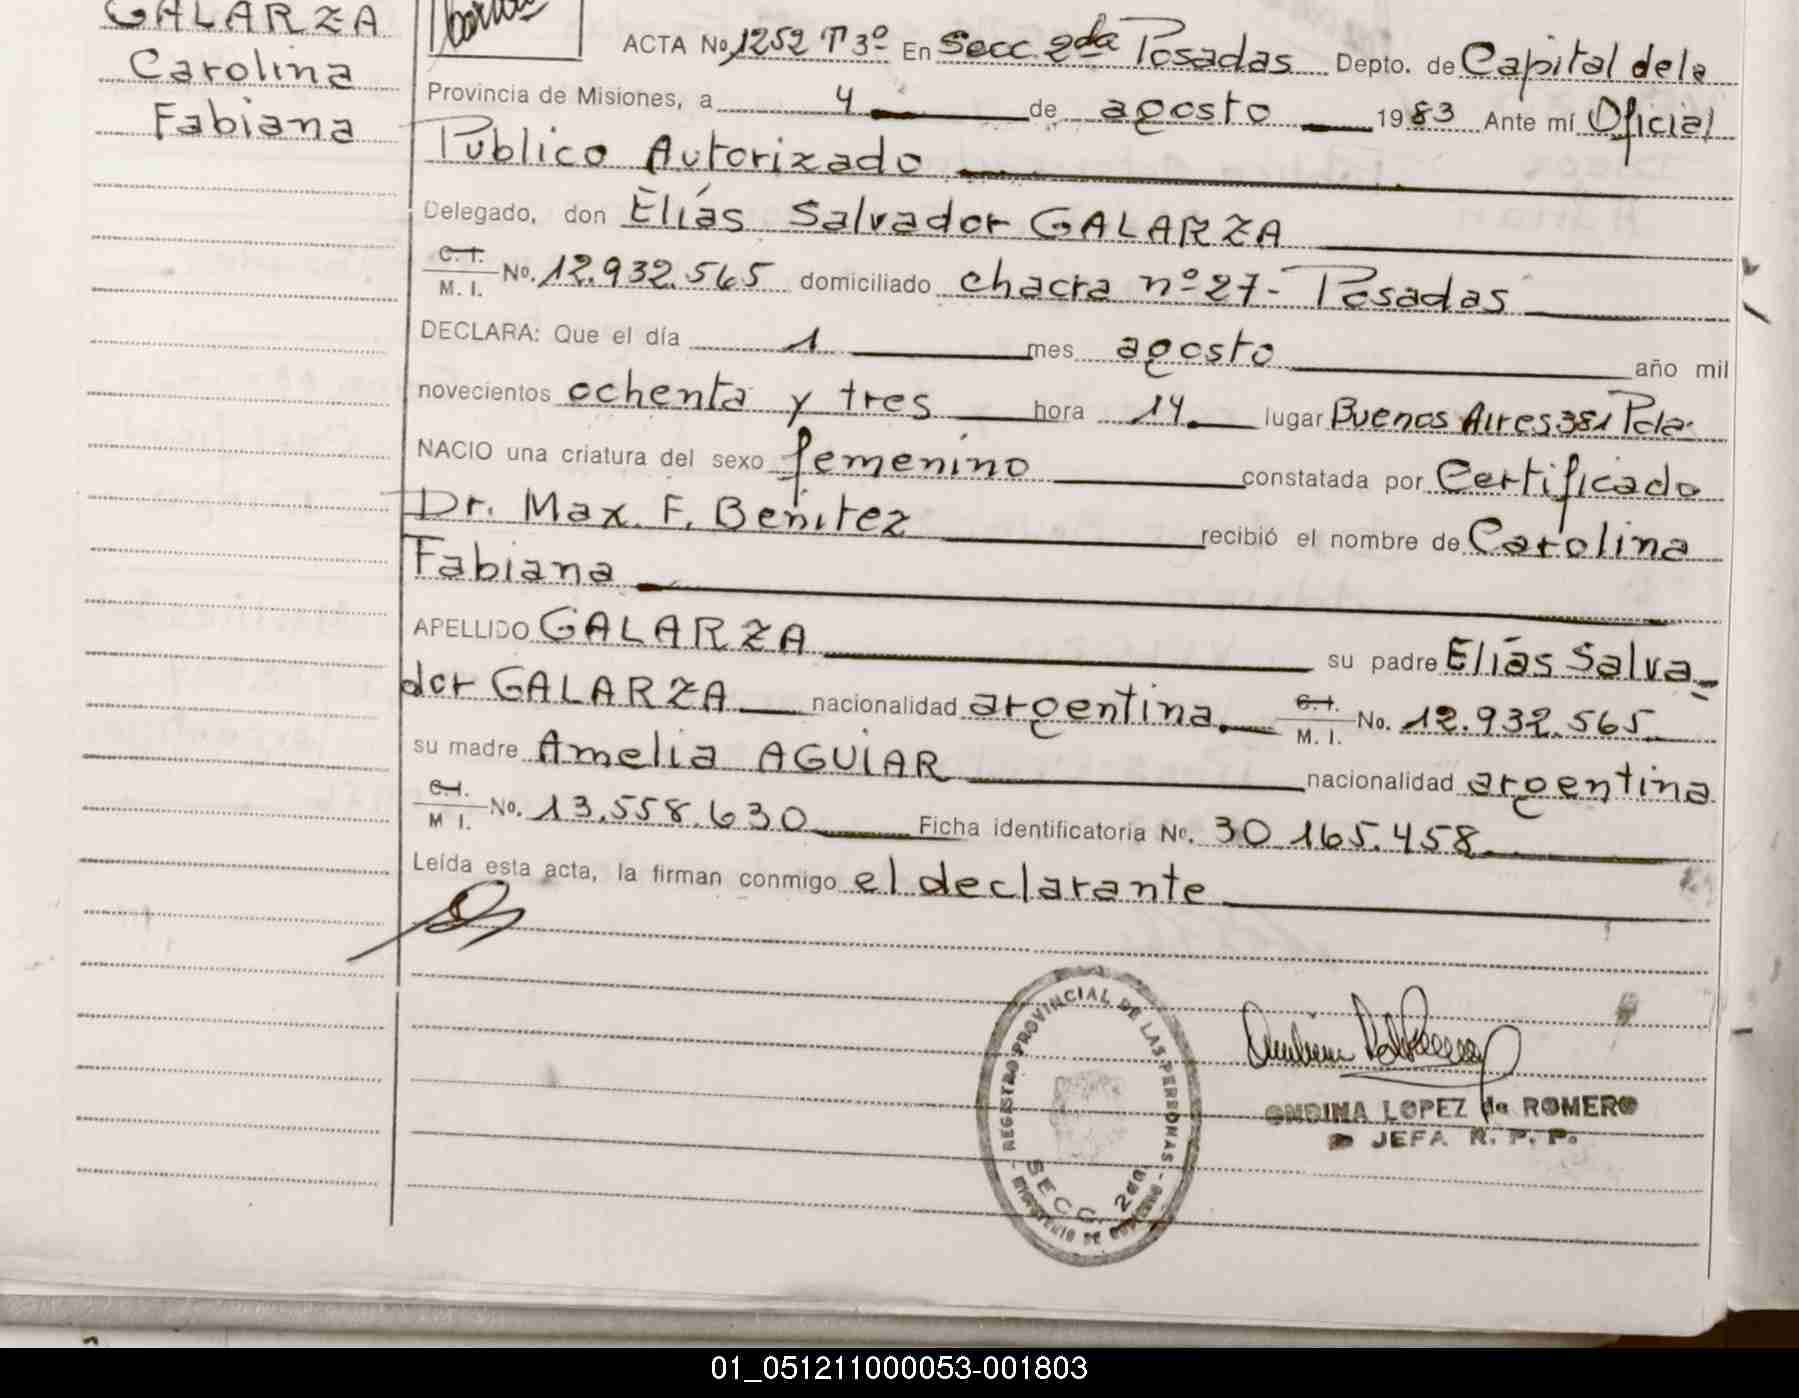 GALARZA
Carolina
Fabiana
ACTA No. 1252 Tº 3º En Secc. 2da Posadas Depto. de Capital de la
Provincia de Misiones, a 4 de agosto 1983 Ante mí Oficial
Público Autorizado
Delegado, don Elías Salvador GALARZA
C. I.
M. I. No. 12.932.565 domiciliado chacra nº 27 - Posadas
DECLARA: Que el día 1 mes agosto año mil
novecientos ochenta y tres hora 14 lugar Buenos Aires 381 Pdas
NACIO una criatura del sexo femenino constatada por Certificado
Dr. Max. F. Benitez recibió el nombre de Carolina
Fabiana
APELLIDO GALARZA su padre Elías Salva-
dor GALARZA nacionalidad argentina. C. I.
M. I. No. 12.932.565
su madre Amelia AGUIAR nacionalidad argentina
C. I.
M I. No. 13.558.630 Ficha identificatoria No. 30 165.458
Leída esta acta, la firman conmigo el declarante
REGISTRO PROVINCIAL DE LAS PERSONAS
SECC. 2da
MINISTERIO DE GOBIERNO
ONDINA LOPEZ de ROMERO
JEFA R. P. P.
01_051211000053-001803